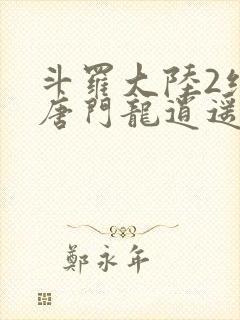 斗羅大陸2
唐門龍逍遥
鄭永年